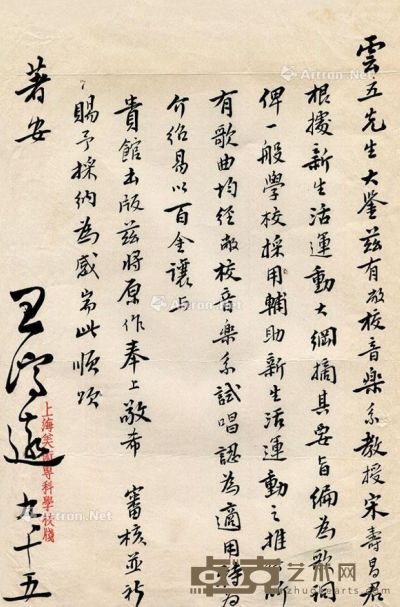 雲五先生大鑒茲有敝校音樂系教授宋壽昌君
根據新生活運動大綱摘其要旨編為歌詞
俾一般學校採用輔助新生活運動之推
有歌曲均經敝校音樂系試唱認為適用特為
介紹易以百金讓与
貴館出版茲將原作奉上敬希 審核並祈
賜予採納為感耑此順頌
著安
王濟遠 九十五
上海美術專科學校牋
Artron.Net
卓克艺术网